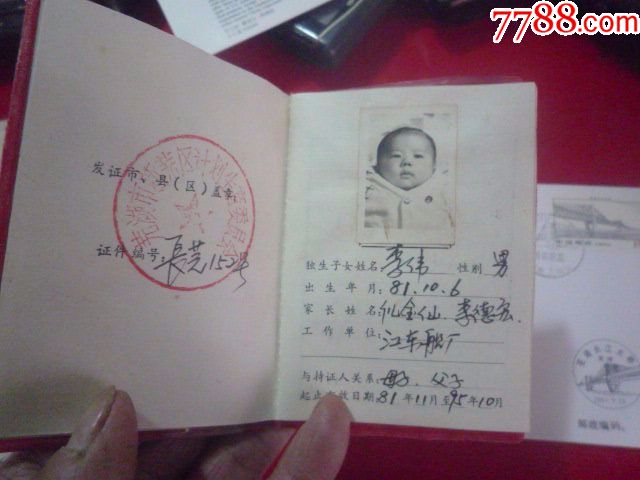 7788.com
发证市、县(区)盖章
证件编号:長芜152号
独生子女姓名 李伟 性别 男
出生年月:81.10.6
家长姓名 仉金仙、李德宏
工作单位:江东船厂
与持证人关系:母子、父子
起止有效日期81年11月至95年10月
邮政编码